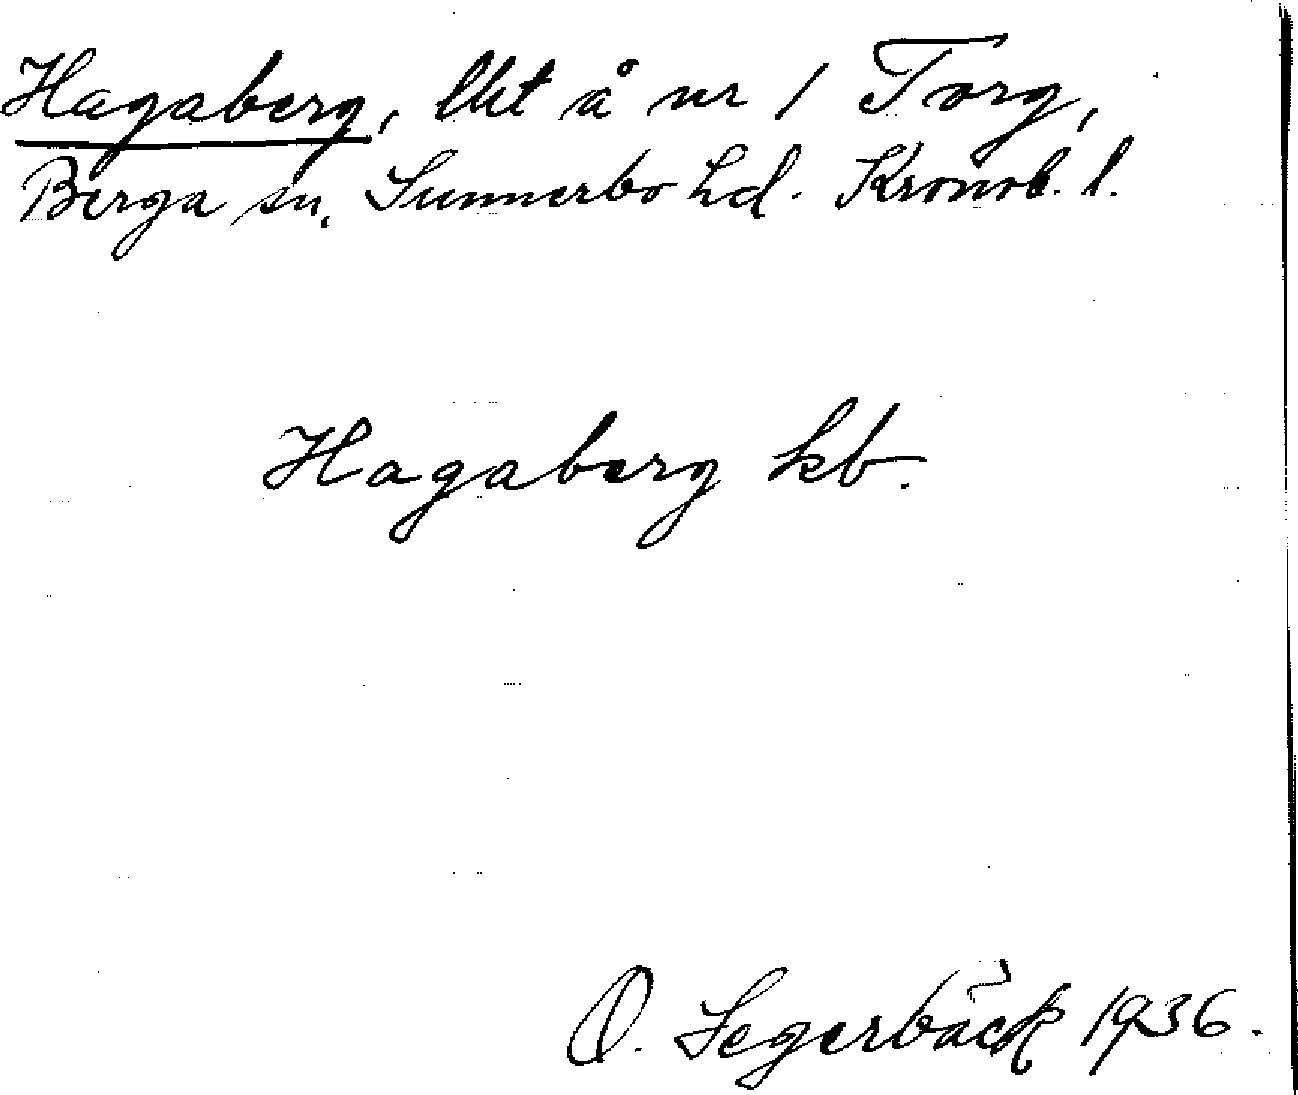 Hagaberg, lht å nr 1 Torg,
Berga sn. Sunnerbo hd. Kronob. l.
Hagaberg kb.
O. Segerbäck 1936.